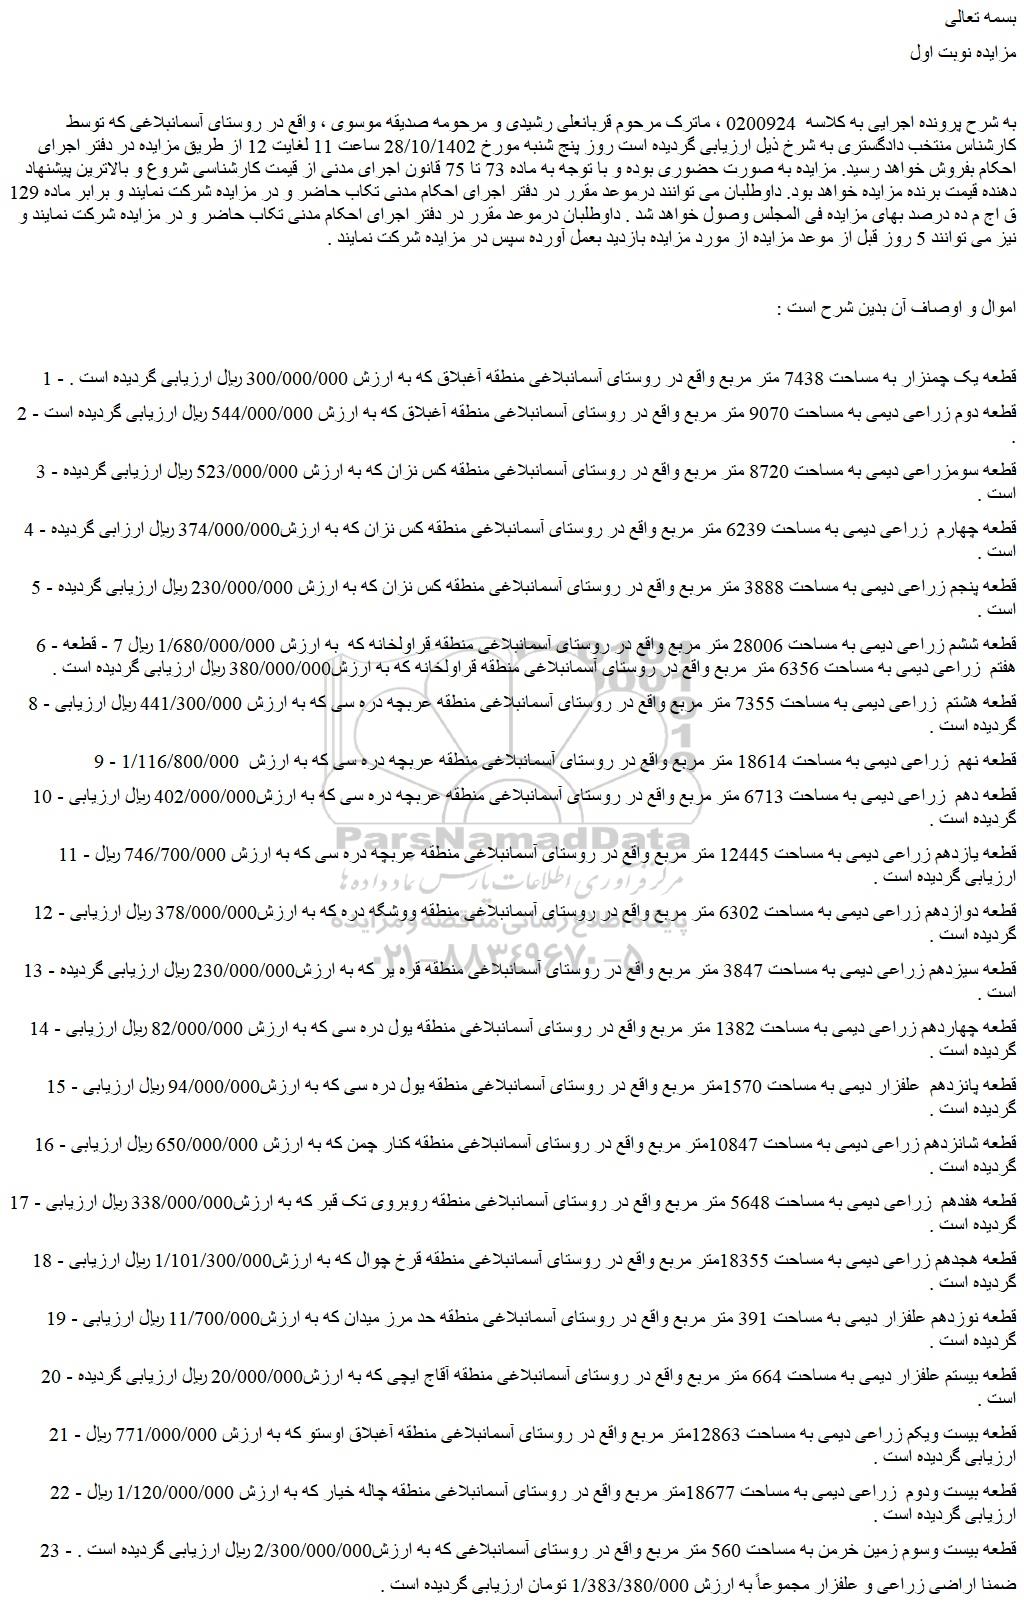 بسمه تعالی
مزایده نوبت اول
به شرح پرونده اجرایی به کلاسه 0200924 ، ماترک مرحوم قربانعلی رشیدی و مرحومه صدیقه موسوی ، واقع در روستای آسمانبلاغی که توسط
کارشناس منتخب دادگستری به شرخ ذیل ارزیابی گردیده است روز پنج شنبه مورخ 28/10/1402 ساعت 11 لغایت 12 از طریق مزایده در دفتر اجرای
احکام بفروش خواهد رسید. مزایده به صورت حضوری بوده و با توجه به ماده 73 تا 75 قانون اجرای مدنی از قیمت کارشناسی شروع و بالاترین پیشنهاد
دهنده قیمت برنده مزایده خواهد بود. داوطلبان می توانند درموعد مقرر در دفتر اجرای احکام مدنی تکاب حاضر و در مزایده شرکت نمایند و برابر ماده 129
ق اج م ده درصد بهای مزایده فی المجلس وصول خواهد شد . داوطلبان درموعد مقرر در دفتر اجرای احکام مدنی تکاب حاضر و در مزایده شرکت نمایند و
نیز می توانند 5 روز قبل از موعد مزایده از مورد مزایده بازدید بعمل آورده سپس در مزایده شرکت نمایند .
اموال و اوصاف آن بدین شرح است :
قطعه یک چمنزار به مساحت 7438 متر مربع واقع در روستای آسمانبلاغی منطقه آغبلاق که به ارزش 300/000/000 ریال ارزیابی گردیده است . - 1
قطعه دوم زراعی دیمی به مساحت 9070 متر مربع واقع در روستای آسمانبلاغی منطقه آغبلاق که به ارزش 544/000/000 ریال ارزیابی گردیده است - 2
.
قطعه سومزراعی دیمی به مساحت 8720 متر مربع واقع در روستای آسمانبلاغی منطقه کس نزان که به ارزش 523/000/000 ریال ارزیابی گردیده - 3
است .
قطعه چهارم زراعی دیمی به مساحت 6239 متر مربع واقع در روستای آسمانبلاغی منطقه کس نزان که به ارزش374/000/000 ریال ارزابی گردیده - 4
است .
قطعه پنجم زراعی دیمی به مساحت 3888 متر مربع واقع در روستای آسمانبلاغی منطقه کس نزان که به ارزش 230/000/000 ریال ارزیابی گردیده - 5
است .
قطعه ششم زراعی دیمی به مساحت 28006 متر مربع واقع در روستای آسمانبلاغی منطقه قراولخانه که به ارزش 1/680/000/000 ریال 7 - قطعه - 6
هفتم زراعی دیمی به مساحت 6356 متر مربع واقع در روستای آسمانبلاغی منطقه قراولخانه که به ارزش380/000/000 ریال ارزیابی گردیده است .
قطعه هشتم زراعی دیمی به مساحت 7355 متر مربع واقع در روستای آسمانبلاغی منطقه عربچه دره سی که به ارزش 441/300/000 ریال ارزیابی - 8
گردیده است .
قطعه نهم زراعی دیمی به مساحت 18614 متر مربع واقع در روستای آسمانبلاغی منطقه عربچه دره سی که به ارزش 1/116/800/000 - 9
قطعه دهم زراعی دیمی به مساحت 6713 متر مربع واقع در روستای آسمانبلاغی منطقه عربچه دره سی که به ارزش402/000/000 ریال ارزیابی - 10
گردیده است .
ParsNamadData
قطعه یازدهم زراعی دیمی به مساحت 12445 متر مربع واقع در روستای آسمانبلاغی منطقه عربچه دره سی که به ارزش 746/700/000 ریال - 11
ارزیابی گردیده است .
مرکز فرآوری اطلاعات پارس نماد داده ها
قطعه دوازدهم زراعی دیمی به مساحت 6302 متر مربع واقع در روستای آسمانبلاغی منطقه ووشگه دره که به ارزش378/000/000 ریال ارزیابی - 12
گردیده است .
پایگاه اطلاع رسانی مناقصه و مزایده
۰۲۱-۸۸۳۴۹۶۷۰-۵
قطعه سیزدهم زراعی دیمی به مساحت 3847 متر مربع واقع در روستای آسمانبلاغی منطقه قره یر که به ارزش230/000/000 ریال ارزیابی گردیده - 13
است .
قطعه چهاردهم زراعی دیمی به مساحت 1382 متر مربع واقع در روستای آسمانبلاغی منطقه یول دره سی که به ارزش 82/000/000 ریال ارزیابی - 14
گردیده است .
قطعه پانزدهم علفزار دیمی به مساحت 1570متر مربع واقع در روستای آسمانبلاغی منطقه یول دره سی که به ارزش94/000/000 ریال ارزیابی - 15
گردیده است .
قطعه شانزدهم زراعی دیمی به مساحت 10847متر مربع واقع در روستای آسمانبلاغی منطقه کنار چمن که به ارزش 650/000/000 ریال ارزیابی - 16
گردیده است .
قطعه هفدهم زراعی دیمی به مساحت 5648 متر مربع واقع در روستای آسمانبلاغی منطقه روبروی تک قبر که به ارزش338/000/000 ریال ارزیابی - 17
گردیده است .
قطعه هجدهم زراعی دیمی به مساحت 18355متر مربع واقع در روستای آسمانبلاغی منطقه قرخ چوال که به ارزش1/101/300/000 ریال ارزیابی - 18
گردیده است .
قطعه نوزدهم علفزار دیمی به مساحت 391 متر مربع واقع در روستای آسمانبلاغی منطقه حد مرز میدان که به ارزش11/700/000 ریال ارزیابی - 19
گردیده است .
قطعه بیستم علفزار دیمی به مساحت 664 متر مربع واقع در روستای آسمانبلاغی منطقه آقاج ایچی که به ارزش20/000/000 ریال ارزیابی گردیده - 20
است .
قطعه بیست ویکم زراعی دیمی به مساحت 12863متر مربع واقع در روستای آسمانبلاغی منطقه آغبلاق اوستو که به ارزش 771/000/000 ریال - 21
ارزیابی گردیده است .
قطعه بیست ودوم زراعی دیمی به مساحت 18677متر مربع واقع در روستای آسمانبلاغی منطقه چاله خیار که به ارزش 1/120/000/000 ریال - 22
ارزیابی گردیده است .
قطعه بیست وسوم زمین خرمن به مساحت 560 متر مربع واقع در روستای آسمانبلاغی که به ارزش2/300/000/000 ریال ارزیابی گردیده است . - 23
ضمنا اراضی زراعی و علفزار مجموعاً به ارزش 1/383/380/000 تومان ارزیابی گردیده است .